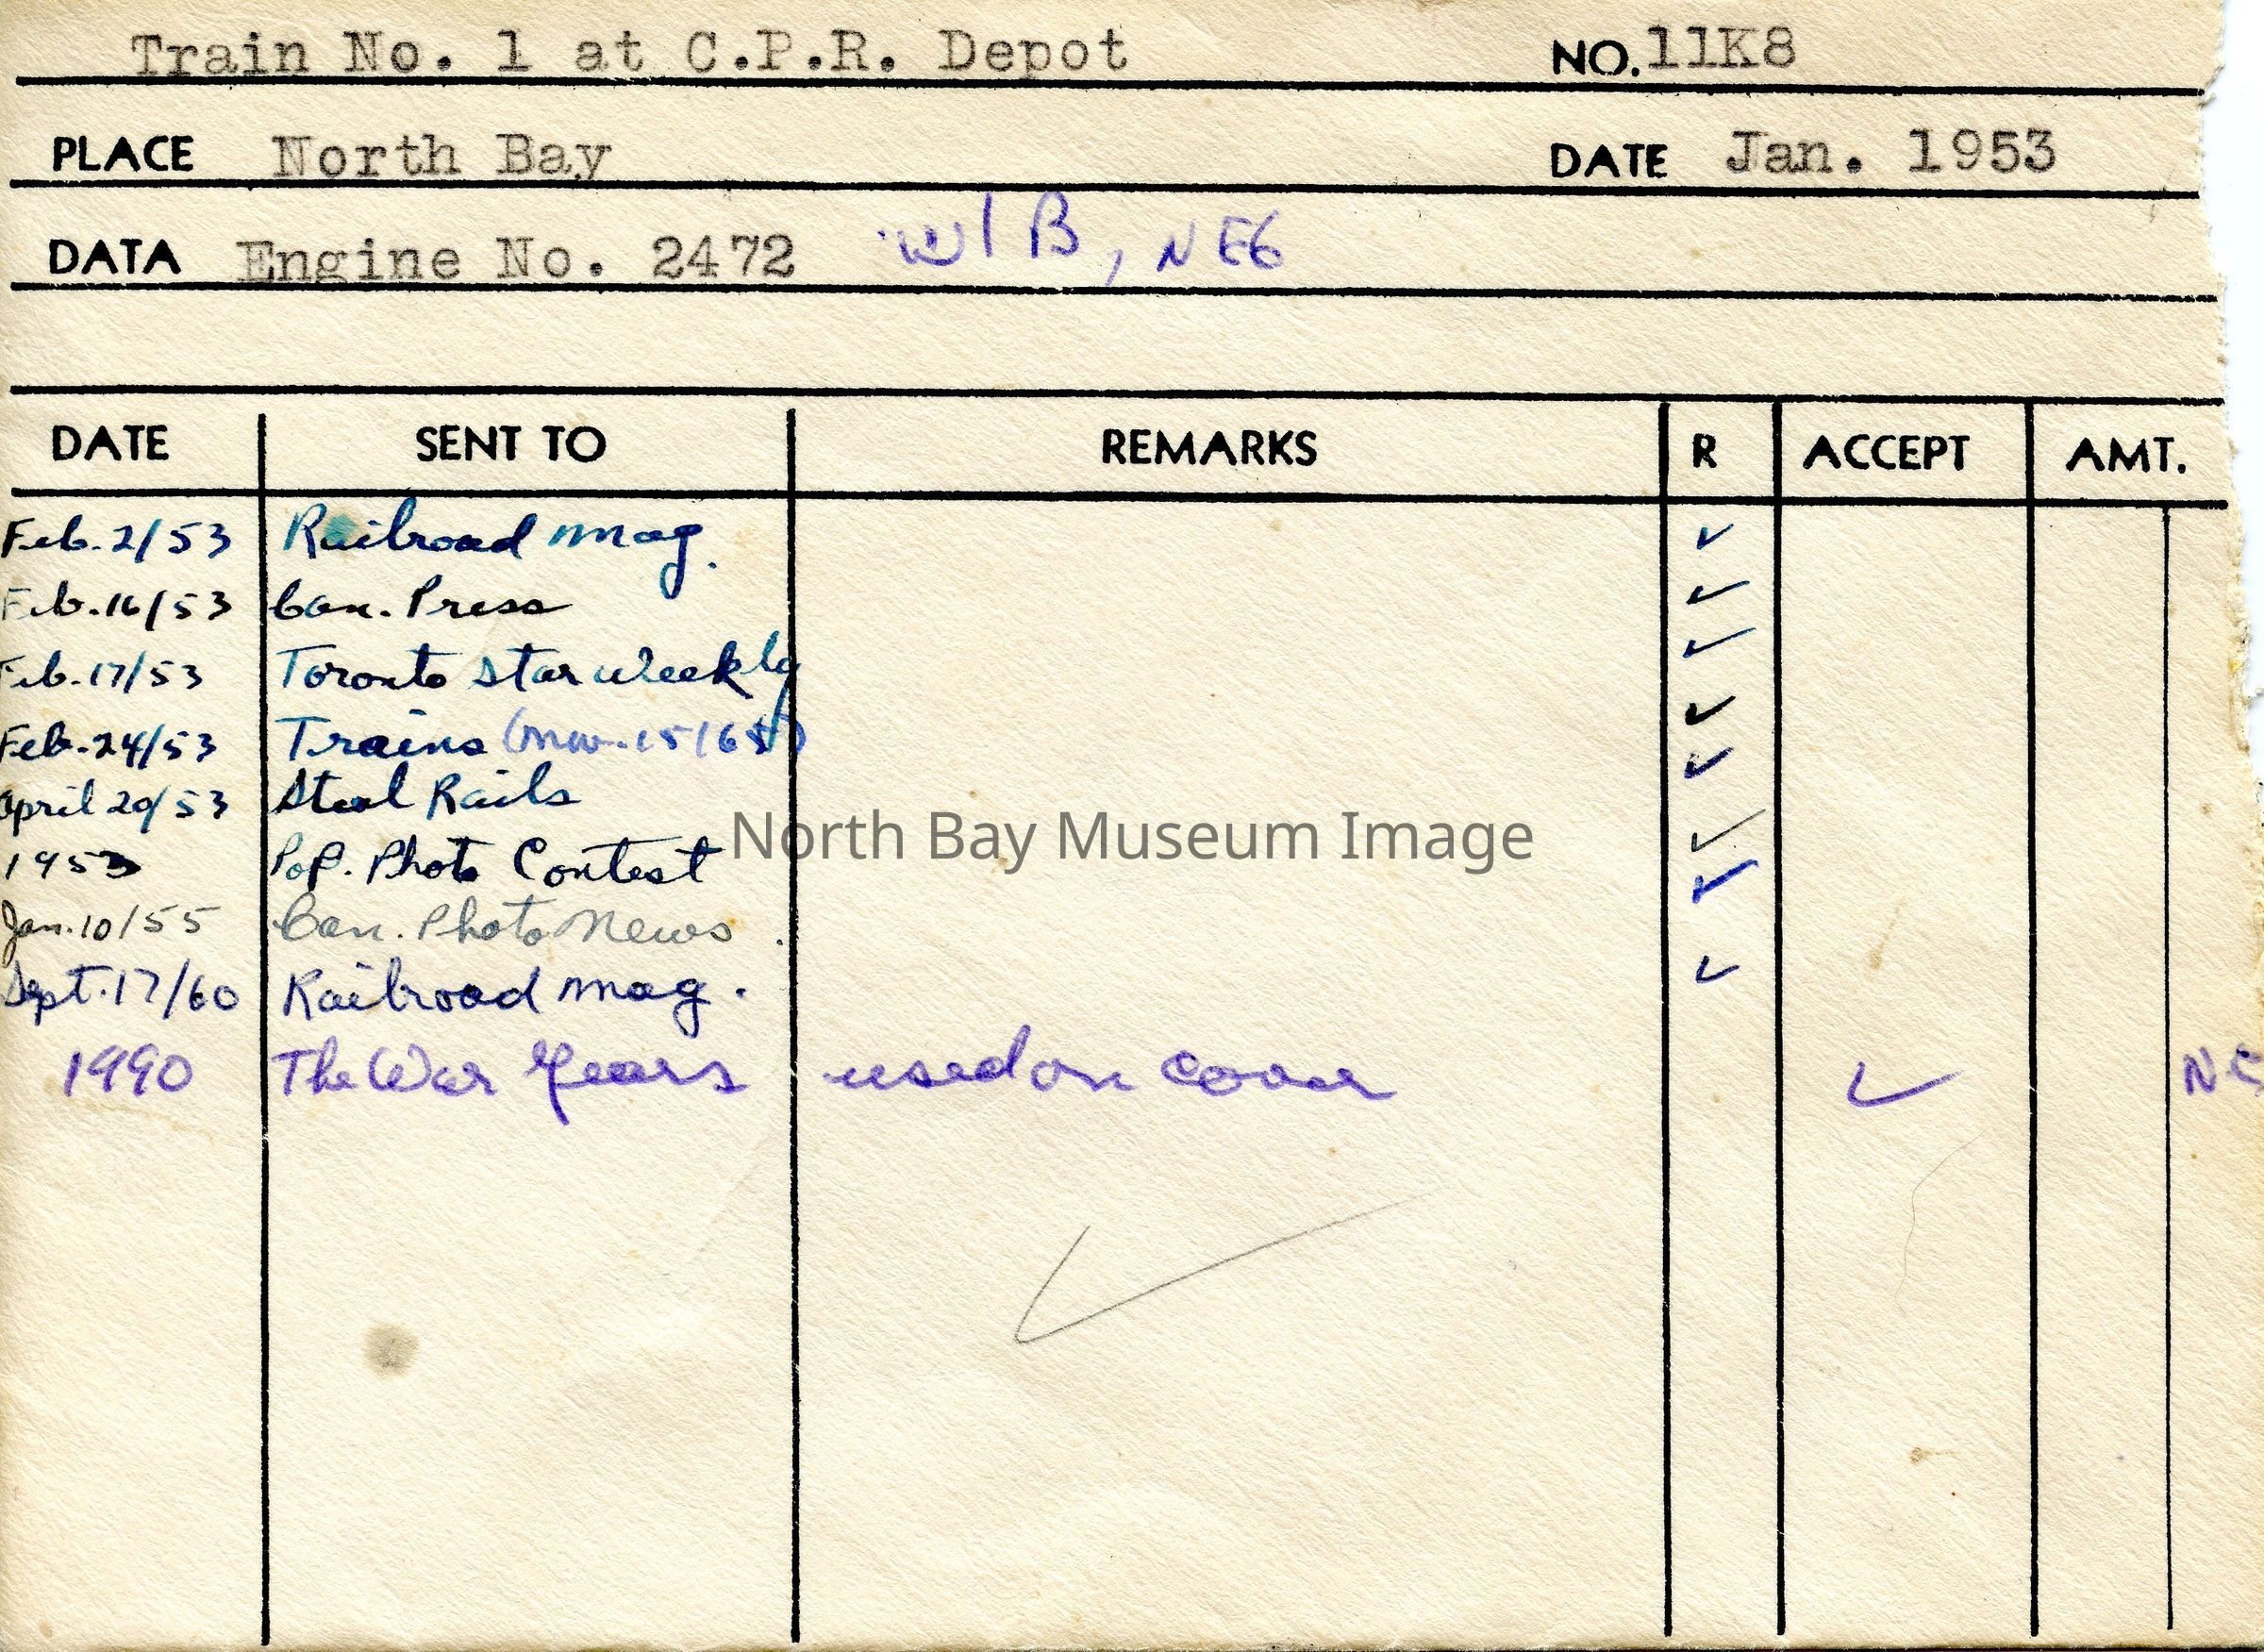 Train No. 1 at C.P.R. Depot NO. 11K8
PLACE North Bay DATE Jan. 1953
DATA Engine No. 2472 w/ B, NEG
DATE SENT TO REMARKS R ACCEPT AMT.
Feb. 2/53 Railroad Mag. ✓
Feb. 16/53 Can. Press ✓
Feb. 17/53 Toronto Star Weekly ✓
Feb. 24/53 Trains ✓
April 20/53 Steel Rails ✓
1953 Pop. Photo Contest ✓
Jan. 10/55 Can. Photo News. ✓
Sept. 17/60 Railroad Mag. ✓
1990 The War Years used on cover ✓
North Bay Museum Image